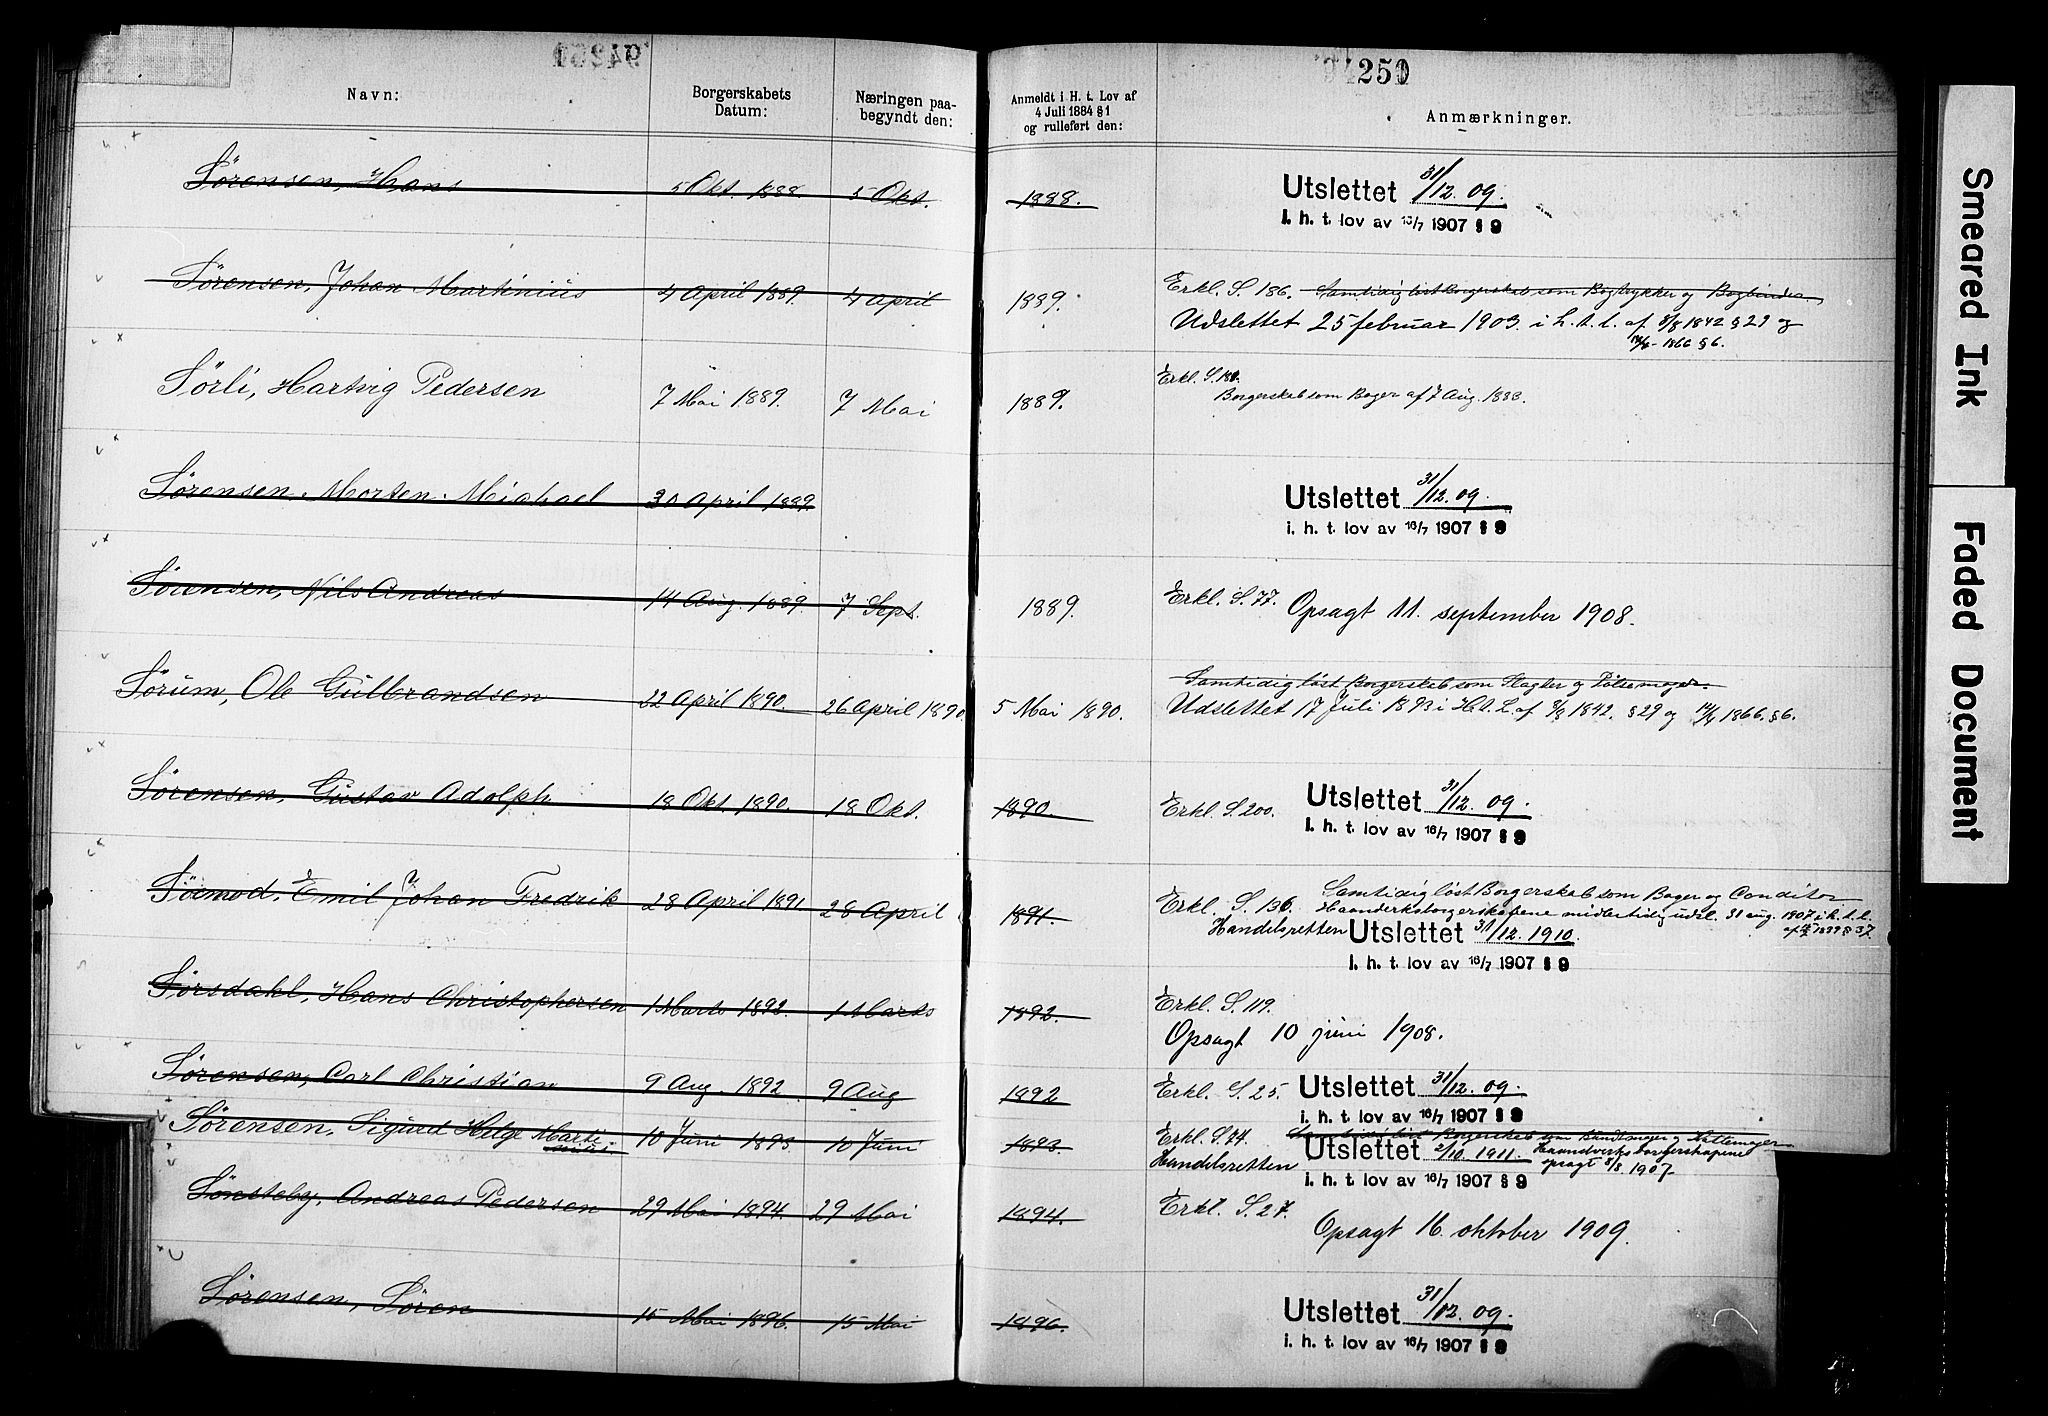 251
Navn:
Borgerskabets
Datum:
Næringen paa-
begyndt den:
Anmeldt i H. t. Lov af
4 Juli 1884 § 1
og rulleført den:
Anmærkninger.
Sørensen, Hans 5 Okt. 1888. 5 Okt. 1888. Utslettet 31/12. 09.
i. h. t. lov av 16/7 1907 § 9
Sørensen, Johan Martinius 4 April 1889. 4 April 1889. Erkl. S. 186. Samtidig løst Borgerskab som Bogtrykker og Bogbinder.
Udslettet 25 februar 1903. i h. t. l. af 8/8 1842 § 29 og
14/4 1866 § 6.
Sörli, Hartvig Pedersen 7 Mai 1889. 7 Mai 1889. Erkl. S.
Borgerskab som Bager af 7 Aug. 1888.
Sørensen, Morten Michael 30 April 1889. Utslettet 31/12. 09.
i. h. t. lov av 16/7 1907 § 9
Sørensen, Nils Andreas 14 Aug. 1889. 7 Sept. 1889. Erkl. S. 77. Opsagt 11. september 1908.
Sørum, Ole Gulbrandsen 22 April 1890. 26 April 1890. 5 Mai 1890. Samtidig løst Borgerskab som Slagter og Pölsemager.
Udslettet 17 Juli 1893 i H. t. L. af 8/8 1842. § 29 og 14/4 1866. § 6.
Sørensen, Gustav Adolph 18 Okt. 1890. 18 Okt. 1890. Erkl. S. 200. Utslettet 31/12. 09.
i. h. t. lov av 16/7 1907 § 9
Emil Johan Fredrik 28 April 1891 28 April 1891. Erkl. S. 136. Samtidig løst Borgerskab som Bager og Conditor
Haandverksborgerskapene midlertidig udsl. 31 aug. 1907 i h. t. l.
§ 37.
Handelsretten Utslettet 31/12. 1910.
i. h. t. lov av 16/7 1907 § 9
Sørsdahl, Hans Christophersen 1 Marts 1892. 1 Marts 1892. Erkl. S. 119.
Opsagt 10 juni 1908.
Sørensen, Carl Christian 9 Aug. 1892. 9 Aug 1892 Erkl. S. 25. Utslettet 31/12. 09.
i. h. t. lov av 16/7 1907 § 9
Sørensen, Sigurd Helge Marti- 10 Juni 1893 10 Juni 1893. Erkl. S. 74. Samtidig løst Borgerskab som Bundtmager og Hattemager
Handelsretten Utslettet 2/10. 1911. Haandverksborgerskapene
opsagt 8/8 1907.
i. h. t. lov av 16/7 1907 § 9
Sönsteby, Andreas Pedersen 29 Mai 1894. 29 Mai 1894. Erkl. S. 27.
Opsagt 16. oktober 1909.
Sørensen, Sören 15 Mai 1896. 15 Mai 1896. Utslettet 31/12. 09.
i. h. t. lov av 16/7 1907 § 9
Smeared Ink
Faded Document